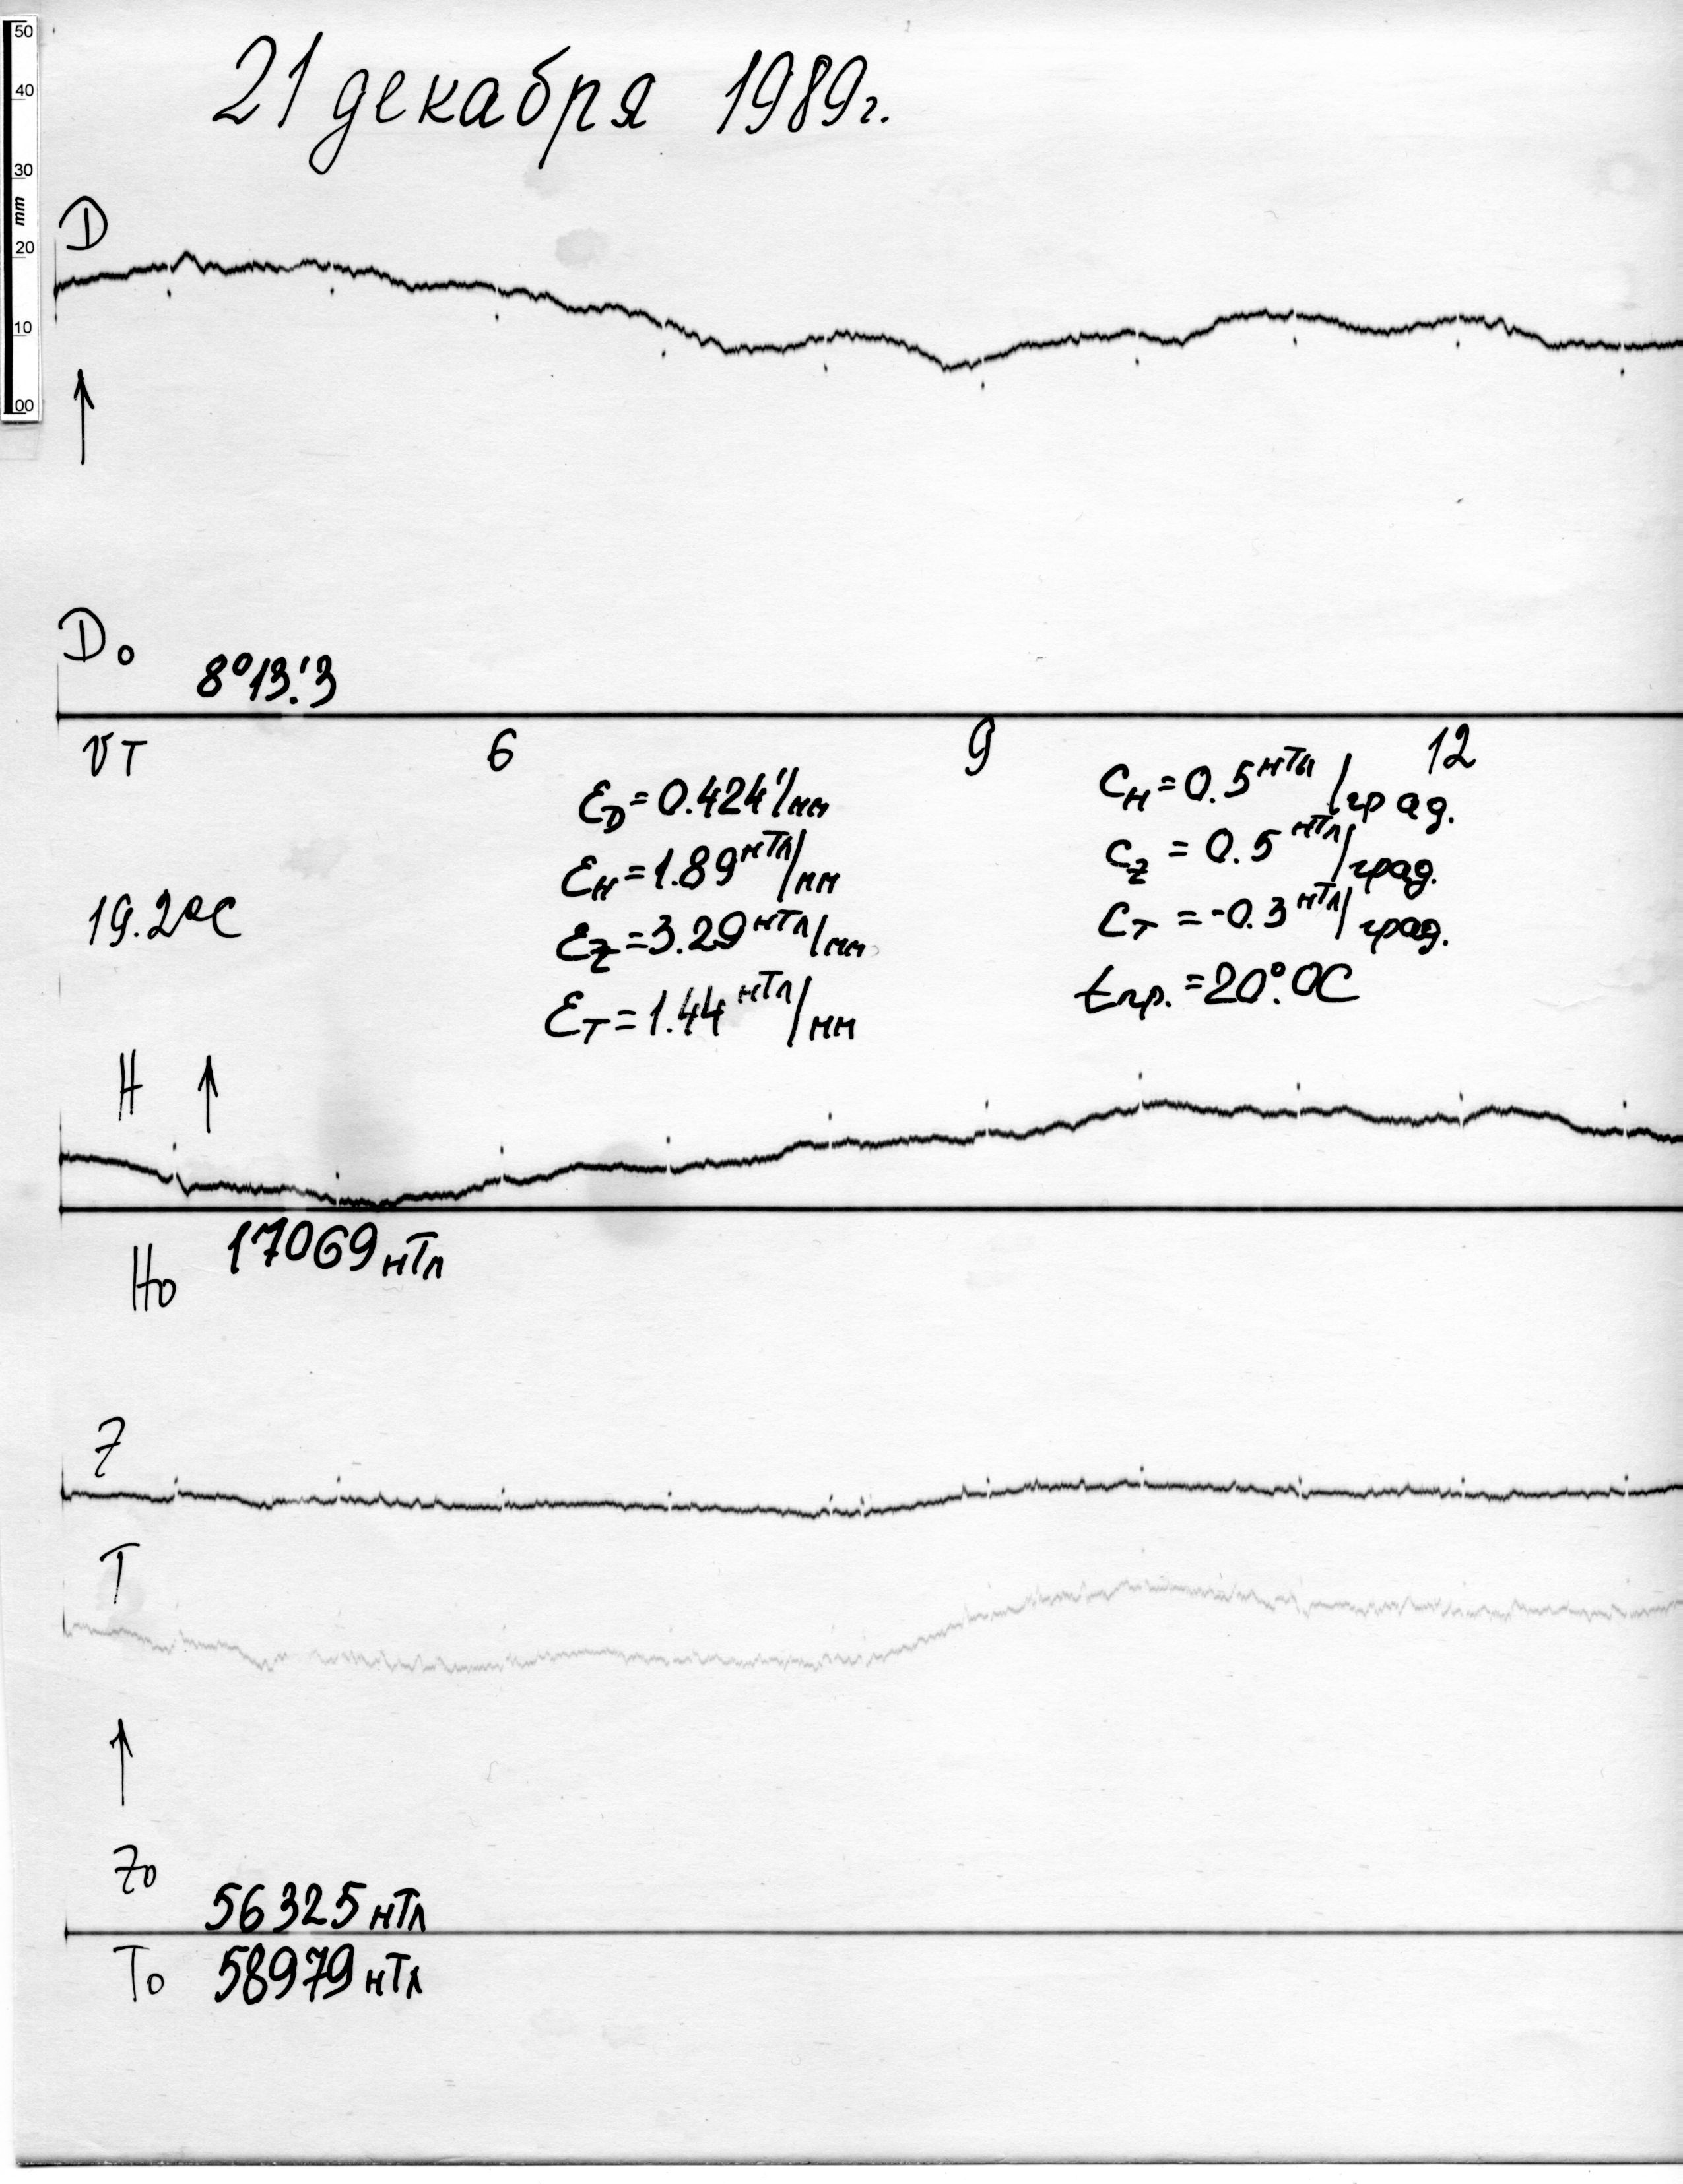 50
40
30
mm
20
10
00
21 декабря 1989г.
D
D₀
8°13.'3
UT 6 9 12
ε_D=0.424'/мм
ε_H=1.89нТл/мм
ε_Z=3.29нТл/мм
ε_T=1.44нТл/мм
C_H=0.5нТл/град.
C_Z=0.5нТл/град.
C_T=-0.3нТл/град.
tпр.=20°.0C
19.2°C
H
17069нТл
H₀
Z
T
Z₀
56325нТл
T₀ 58979нТл